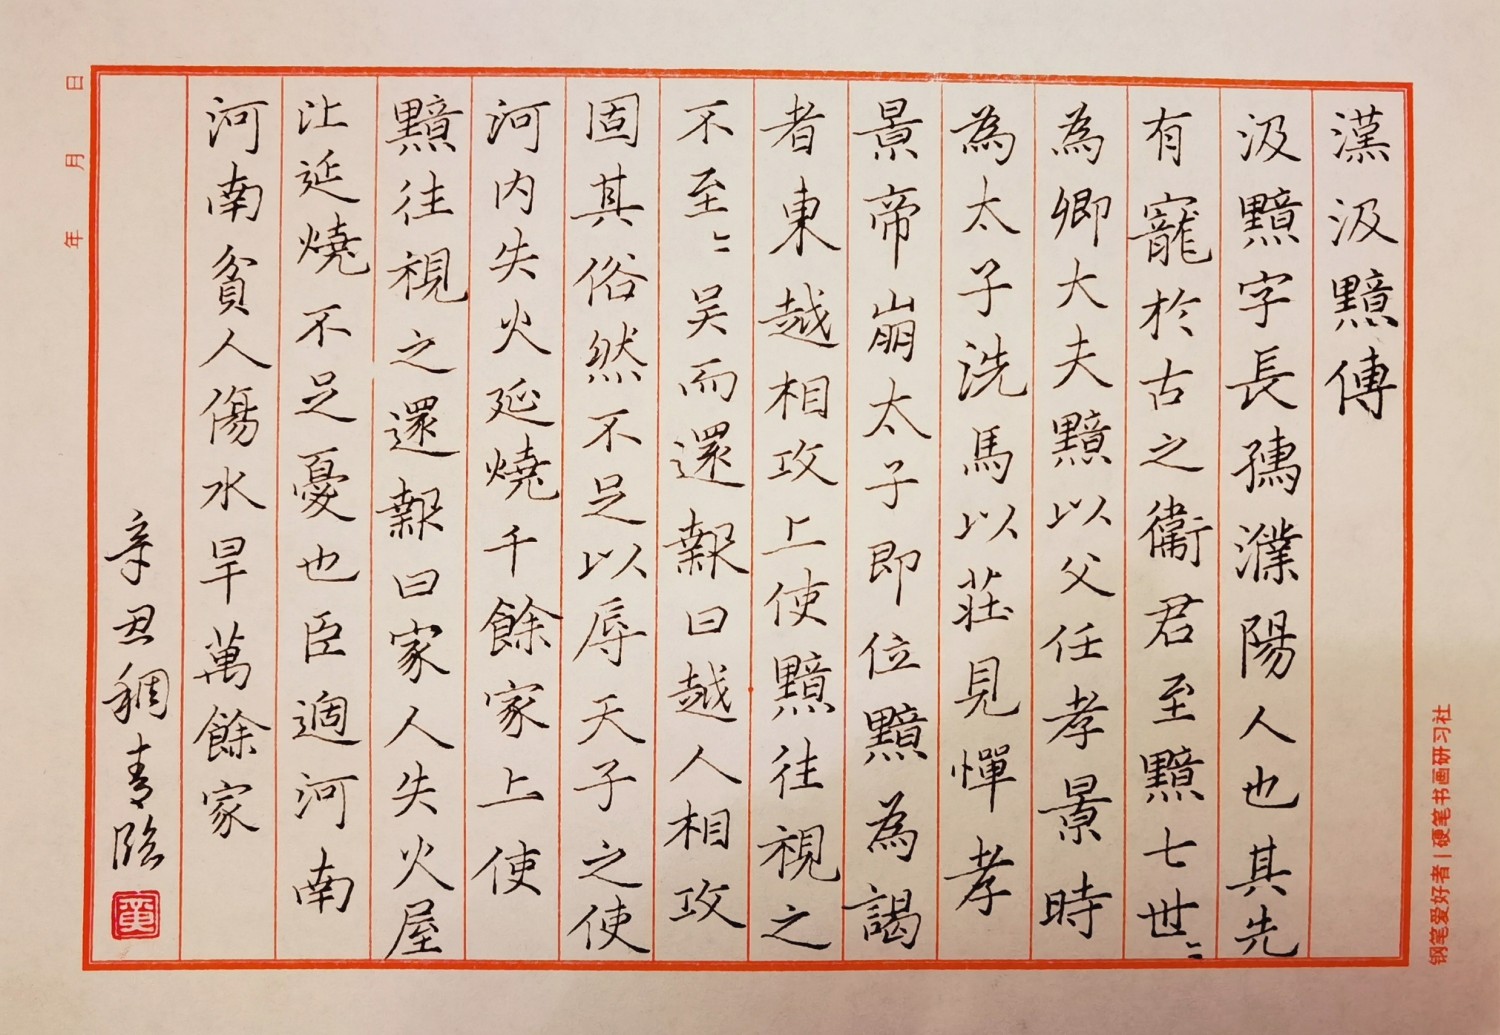 漢汲黯傳
汲黯字長孺濮陽人也其先
有寵於古之衛君至黯七世〻
為卿大夫黯以父任孝景時
為太子洗馬以莊見憚孝
景帝崩太子即位黯為謁
者東越相攻上使黯往視之
不至〻吴而還報曰越人相攻
固其俗然不足以辱天子之使
河内失火延燒千餘家上使
黯往視之還報曰家人失火屋
比延燒不足憂也臣過河南
河南貧人傷水旱萬餘家
辛丑稠青臨
年 月 日
钢笔爱好者|硬笔书画研习社